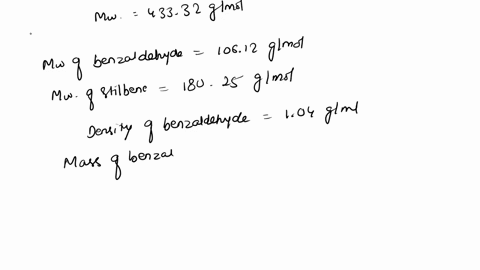 Mw. = 433.32 g/mol
Mw of benzaldehyde = 106.12 g/mol
Mw. of stilbene = 180.25 g/mol
Density of benzaldehyde = 1.04 g/ml
Mass of benzal